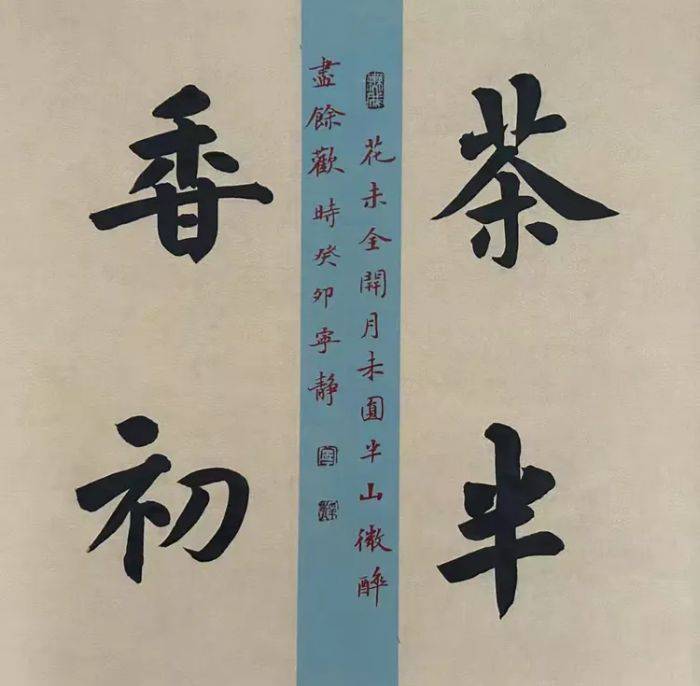 茶半
香初
花未全開月未圓半山微醉
盡餘歡時癸卯寧靜